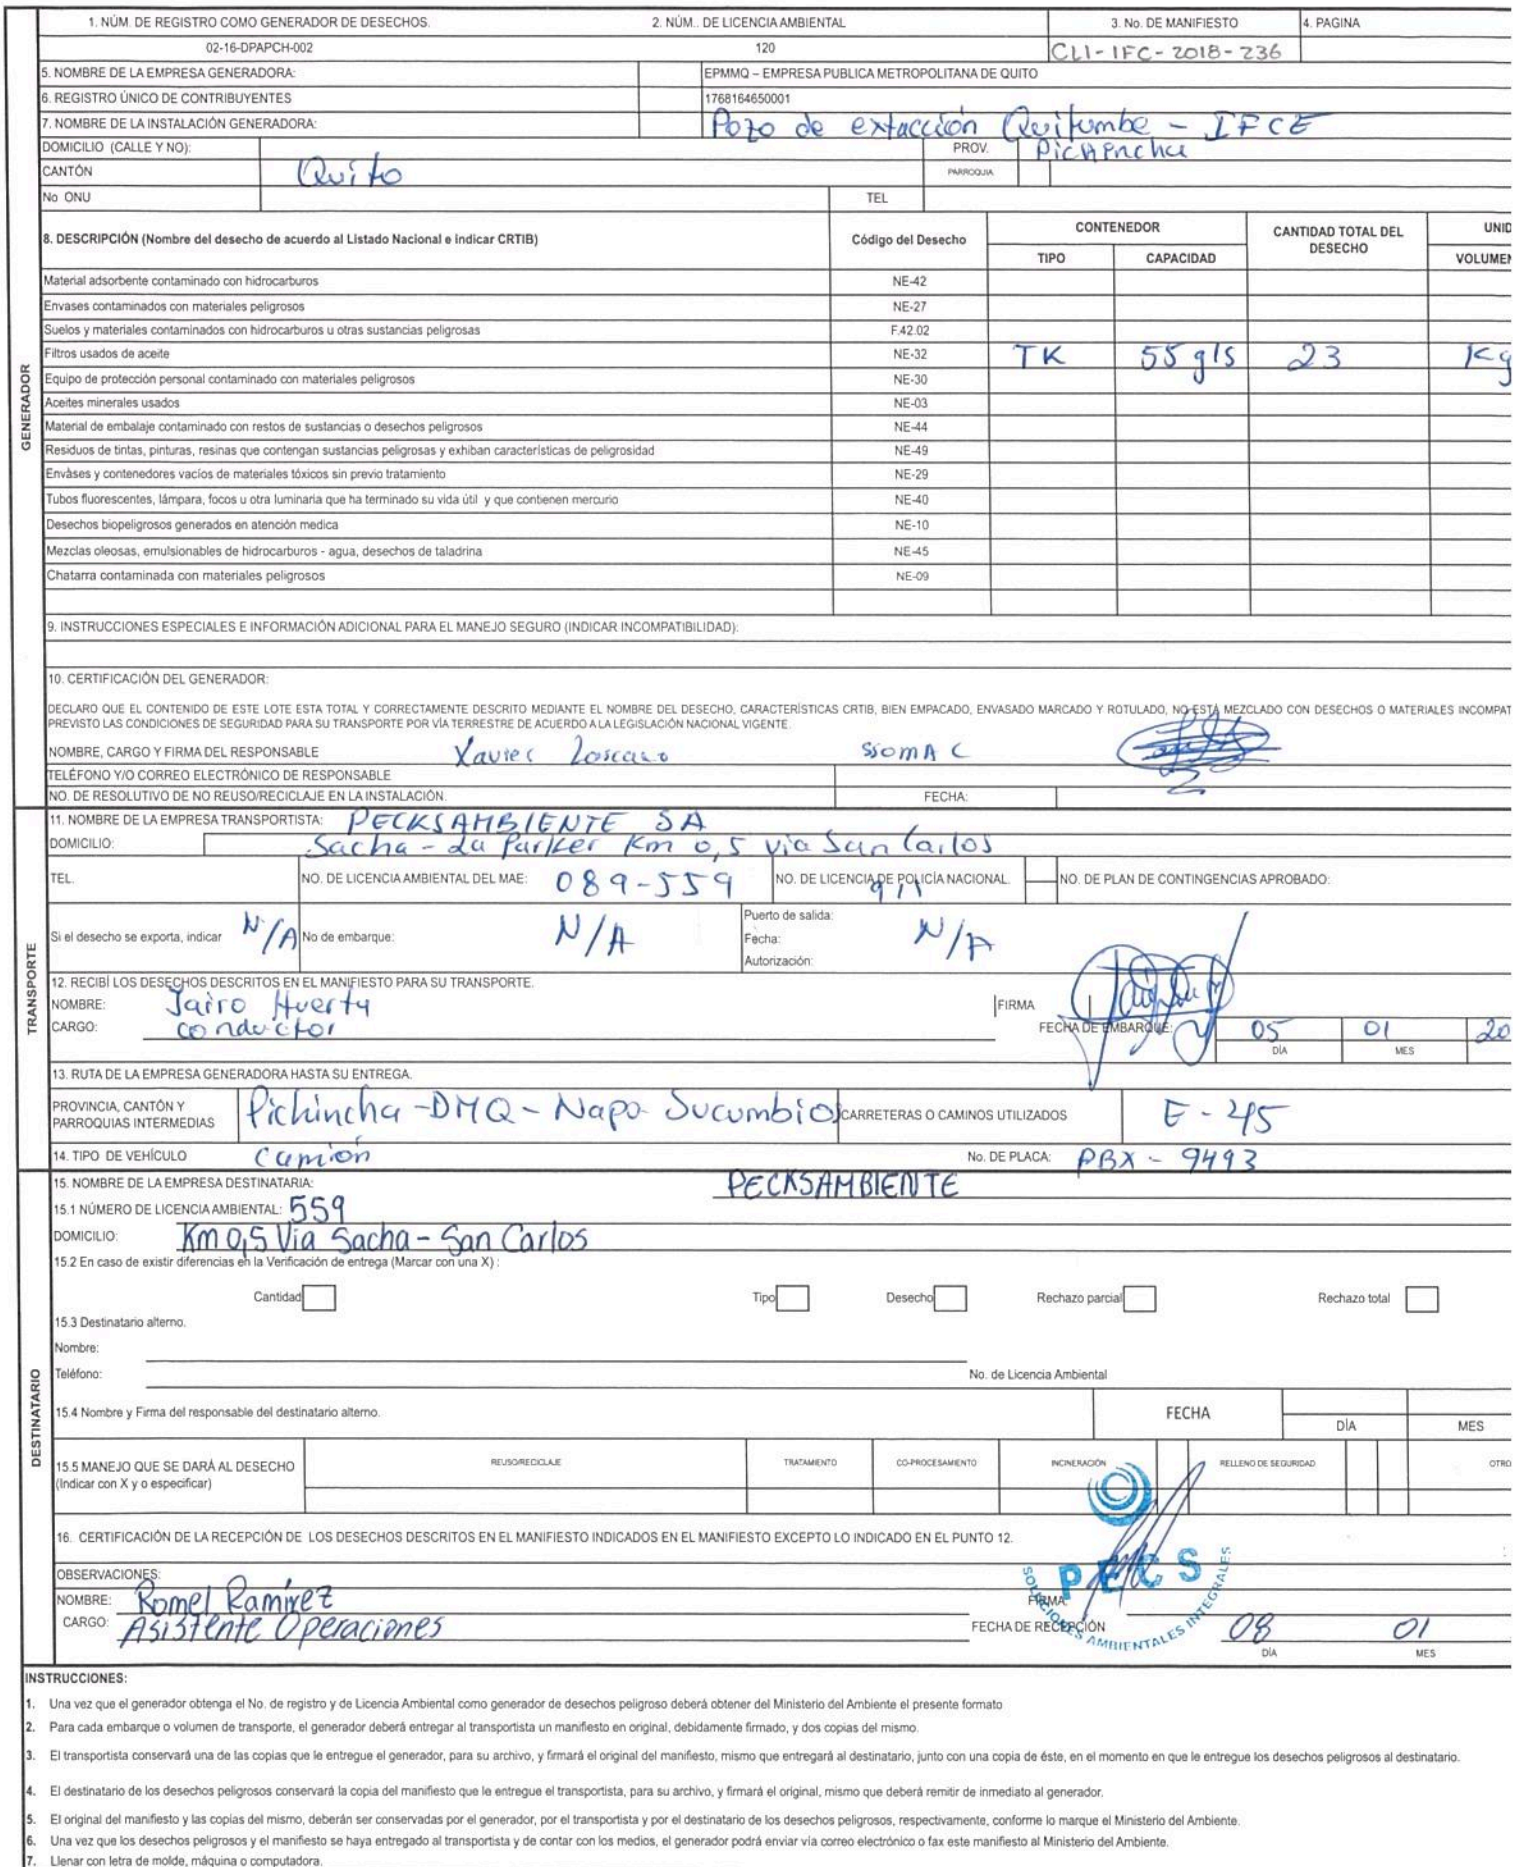 1. NÚM. DE REGISTRO COMO GENERADOR DE DESECHOS. 2. NÚM.. DE LICENCIA AMBIENTAL 3. No. DE MANIFIESTO 4. PAGINA
02-16-DPAPCH-002 120 CLI-IFC-2018-236
5. NOMBRE DE LA EMPRESA GENERADORA: EPMMQ – EMPRESA PUBLICA METROPOLITANA DE QUITO
6. REGISTRO ÚNICO DE CONTRIBUYENTES 1768164650001
7. NOMBRE DE LA INSTALACIÓN GENERADORA: Pozo de extacción Quitumbe - IFCE
DOMICILIO (CALLE Y NO): PROV. Pichincha
CANTÓN Quito PARROQUIA
No ONU TEL
8. DESCRIPCIÓN (Nombre del desecho de acuerdo al Listado Nacional e indicar CRTIB) Código del Desecho CONTENEDOR CANTIDAD TOTAL DEL DESECHO UNID
TIPO CAPACIDAD VOLUMEN
Material adsorbente contaminado con hidrocarburos NE-42
Envases contaminados con materiales peligrosos NE-27
Suelos y materiales contaminados con hidrocarburos u otras sustancias peligrosas F.42.02
Filtros usados de aceite NE-32 TK 55 gls 23 Kg
Equipo de protección personal contaminado con materiales peligrosos NE-30
Aceites minerales usados NE-03
Material de embalaje contaminado con restos de sustancias o desechos peligrosos NE-44
Residuos de tintas, pinturas, resinas que contengan sustancias peligrosas y exhiban características de peligrosidad NE-49
Envàses y contenedores vacíos de materiales tóxicos sin previo tratamiento NE-29
Tubos fluorescentes, lámpara, focos u otra luminaria que ha terminado su vida útil y que contienen mercurio NE-40
Desechos biopeligrosos generados en atención medica NE-10
Mezclas oleosas, emulsionables de hidrocarburos - agua, desechos de taladrina NE-45
Chatarra contaminada con materiales peligrosos NE-09
9. INSTRUCCIONES ESPECIALES E INFORMACIÓN ADICIONAL PARA EL MANEJO SEGURO (INDICAR INCOMPATIBILIDAD):
10. CERTIFICACIÓN DEL GENERADOR:
DECLARO QUE EL CONTENIDO DE ESTE LOTE ESTA TOTAL Y CORRECTAMENTE DESCRITO MEDIANTE EL NOMBRE DEL DESECHO, CARACTERÍSTICAS CRTIB, BIEN EMPACADO, ENVASADO MARCADO Y ROTULADO, NO ESTÁ MEZCLADO CON DESECHOS O MATERIALES INCOMPAT
PREVISTO LAS CONDICIONES DE SEGURIDAD PARA SU TRANSPORTE POR VÍA TERRESTRE DE ACUERDO A LA LEGISLACIÓN NACIONAL VIGENTE.
NOMBRE, CARGO Y FIRMA DEL RESPONSABLE Xavier SSOMAC
TELÉFONO Y/O CORREO ELECTRÓNICO DE RESPONSABLE
NO. DE RESOLUTIVO DE NO REUSO/RECICLAJE EN LA INSTALACIÓN. FECHA:
GENERADOR
11. NOMBRE DE LA EMPRESA TRANSPORTISTA: PECKSAMBIENTE SA
DOMICILIO: Sacha - La Parker Km 0,5 via San Carlos
TEL. NO. DE LICENCIA AMBIENTAL DEL MAE: 089-559 NO. DE LICENCIA DE POLICÍA NACIONAL. 911 NO. DE PLAN DE CONTINGENCIAS APROBADO:
Si el desecho se exporta, indicar N/A No de embarque: N/A Puerto de salida:
Fecha: N/A
Autorización:
12. RECIBÍ LOS DESECHOS DESCRITOS EN EL MANIFIESTO PARA SU TRANSPORTE.
NOMBRE: Jairo Huerta FIRMA
CARGO: conductor FECHA DE EMBARQUE: 05 01 20
DÍA MES
13. RUTA DE LA EMPRESA GENERADORA HASTA SU ENTREGA.
PROVINCIA, CANTÓN Y PARROQUIAS INTERMEDIAS Pichincha -DMQ - Napo- Sucumbios CARRETERAS O CAMINOS UTILIZADOS E-45
14. TIPO DE VEHÍCULO Camión No. DE PLACA: PBX - 9493
TRANSPORTE
15. NOMBRE DE LA EMPRESA DESTINATARIA: PECKSAMBIENTE
15.1 NÚMERO DE LICENCIA AMBIENTAL: 559
DOMICILIO: Km 0,5 Via Sacha - San Carlos
15.2 En caso de existir diferencias en la Verificación de entrega (Marcar con una X) :
Cantidad Tipo Desecho Rechazo parcial Rechazo total
15.3 Destinatario alterno.
Nombre:
Teléfono: No. de Licencia Ambiental
15.4 Nombre y Firma del responsable del destinatario alterno. FECHA
DÍA MES
15.5 MANEJO QUE SE DARÁ AL DESECHO REUSO/RECICLAJE TRATAMIENTO CO-PROCESAMIENTO INCINERACIÓN RELLENO DE SEGURIDAD OTRO
(Indicar con X y o especificar)
16. CERTIFICACIÓN DE LA RECEPCIÓN DE LOS DESECHOS DESCRITOS EN EL MANIFIESTO INDICADOS EN EL MANIFIESTO EXCEPTO LO INDICADO EN EL PUNTO 12.
OBSERVACIONES:
NOMBRE: Romel Ramírez FIRMA:
CARGO: Asistente Operaciones FECHA DE RECEPCIÓN 08 01
DÍA MES
PECS
SOLUCIONES AMBIENTALES INTEGRALES
DESTINATARIO
INSTRUCCIONES:
1. Una vez que el generador obtenga el No. de registro y de Licencia Ambiental como generador de desechos peligroso deberá obtener del Ministerio del Ambiente el presente formato
2. Para cada embarque o volumen de transporte, el generador deberá entregar al transportista un manifiesto en original, debidamente firmado, y dos copias del mismo.
3. El transportista conservará una de las copias que le entregue el generador, para su archivo, y firmará el original del manifiesto, mismo que entregará al destinatario, junto con una copia de éste, en el momento en que le entregue los desechos peligrosos al destinatario.
4. El destinatario de los desechos peligrosos conservará la copia del manifiesto que le entregue el transportista, para su archivo, y firmará el original, mismo que deberá remitir de inmediato al generador.
5. El original del manifiesto y las copias del mismo, deberán ser conservadas por el generador, por el transportista y por el destinatario de los desechos peligrosos, respectivamente, conforme lo marque el Ministerio del Ambiente.
6. Una vez que los desechos peligrosos y el manifiesto se haya entregado al transportista y de contar con los medios, el generador podrá enviar vía correo electrónico o fax este manifiesto al Ministerio del Ambiente.
7. Llenar con letra de molde, máquina o computadora.